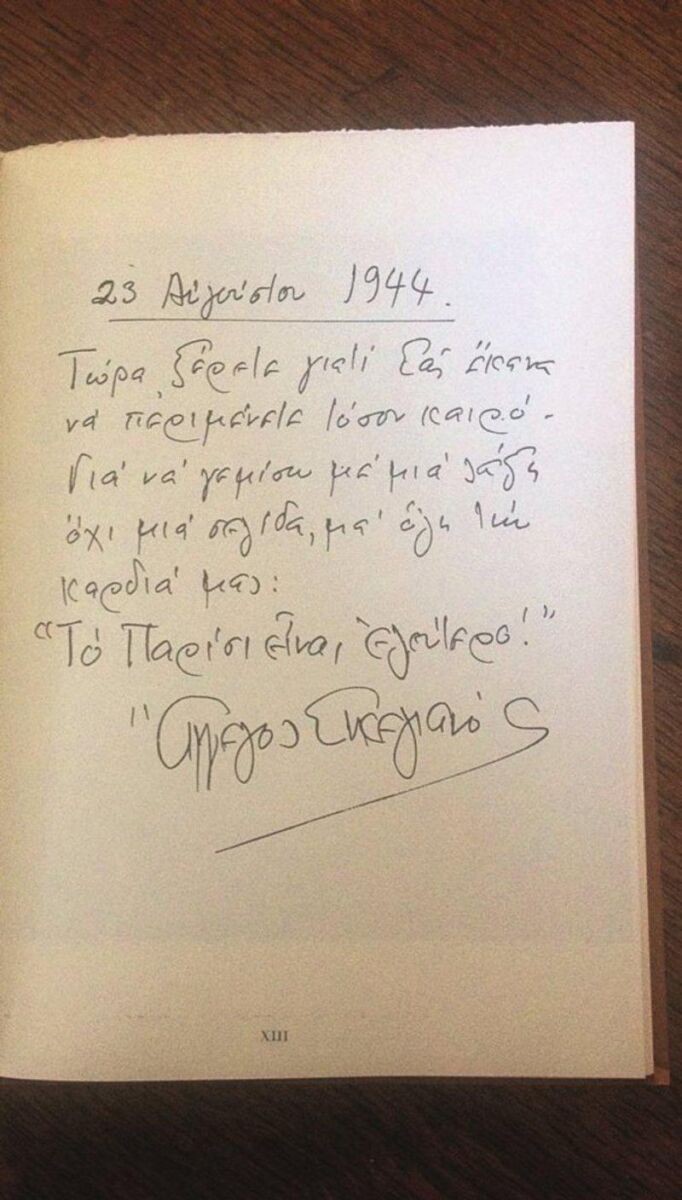 23 Αὐγούστου 1944.
Τώρα ξέρετε γιατί Σᾶς ἔκανα
νά περιμένετε τόσον καιρό -
Γιά νά γεμίσω μέ μιά λάξη
ὄχι μιά σελίδα, μά ὅλη τήν
καρδιά μας:
"Τό Παρίσι εἶναι ἐλεύτερο!"
Ἄγγελος Σικελιανός
XIII